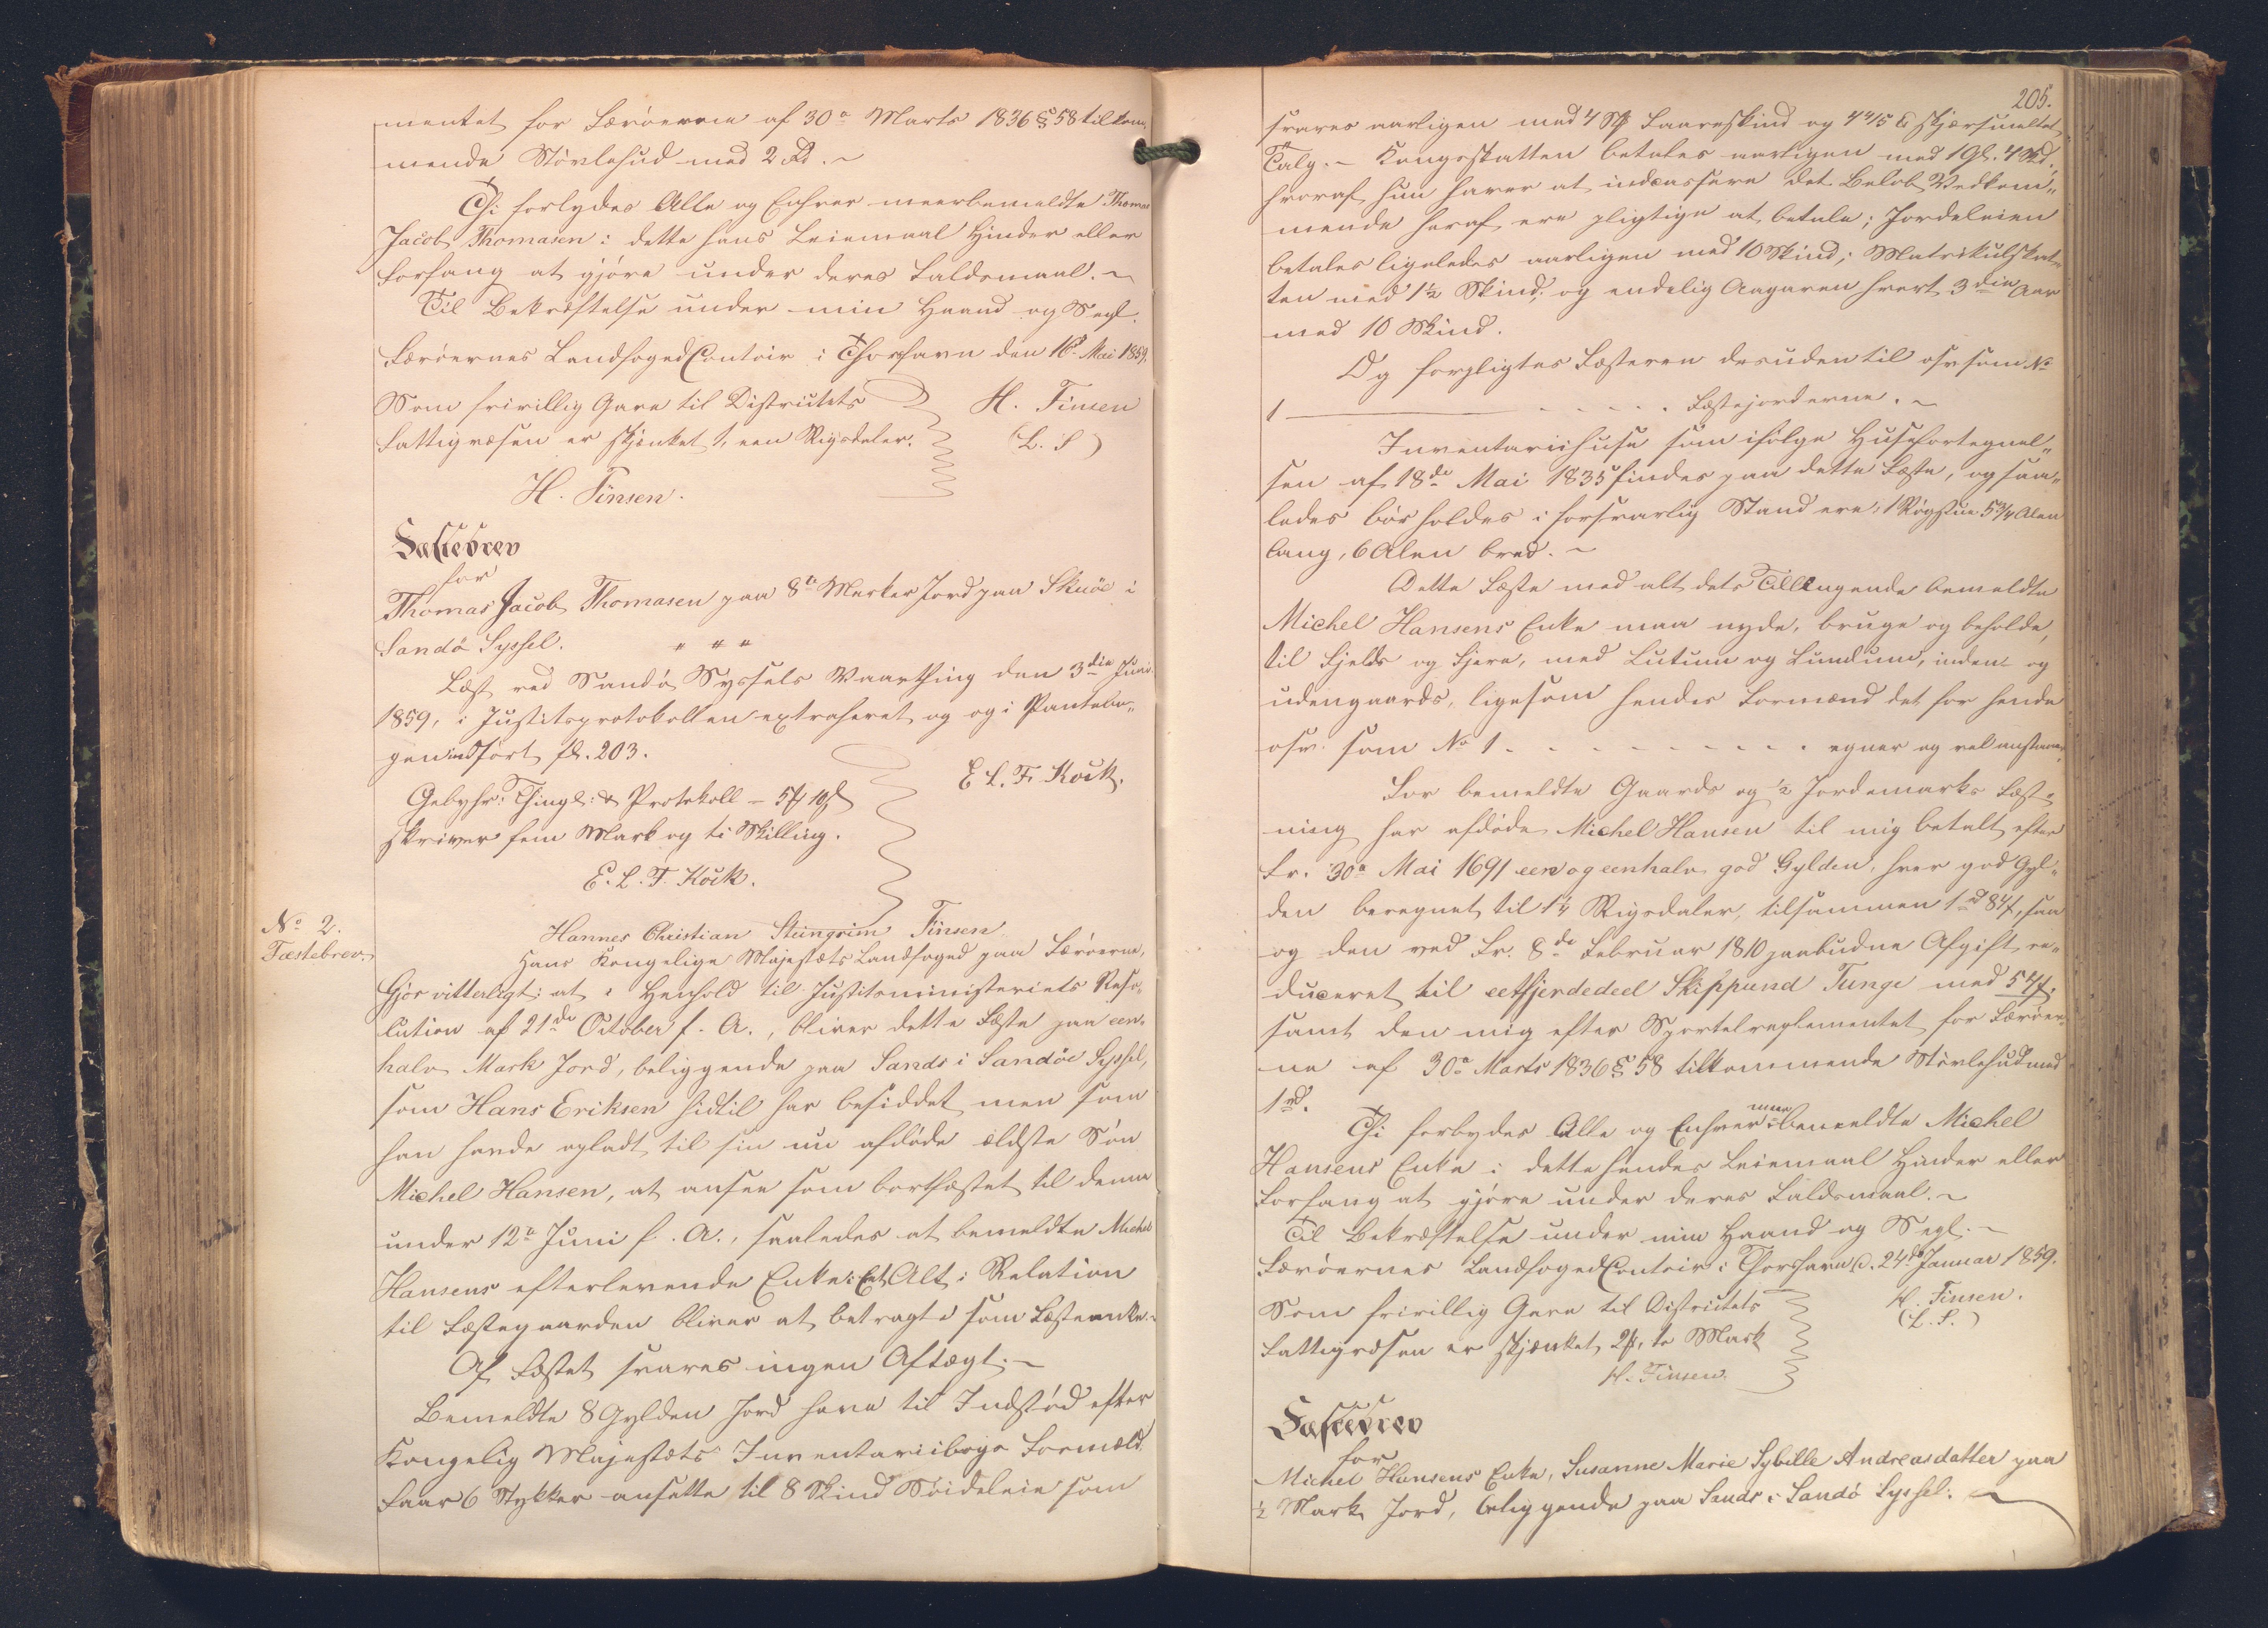 mentet for Færøerne af 30te Marts 1836 § 58 tilkom-
mende Støvlehud med 2 Rd. ~
Thi forbydes Alle og Enhver meerbemeldte Thomas
Jacob Thomasen i dette hans Leiemaal Hinder eller
Forfang at gjøre under deres Faldsmaal. ~
Til Bekræftelse under min Haand og Segl.
Færøernes Landfoged Contoir i Thorshavn den 16de Mai 1859.
Som frivillig Gave til Districtets
Fattigvæsen er skjænket 1, een Rigsdaler.
H. Finsen
(L. S)
H. Finsen.
Fæstebrev
for
Thomas Jacob Thomasen paa 8te Merker Jord paa Skuöe i
Sandö Syssel. " " "
Læst ved Sandö Syssels Vaarthing den 3die Juni
1859, i Justitsprotokollen extraheret og og i Pantebo-
gen indført fol. 203.
E. L. F. Kock.
Gebyhr: Thingl: & Protokoll – 5 Mk 10 s
skriver fem Mark og ti Skilling.
E. L. F. Kock.
No 2.
Fæstebrev.
Hannes Christian Steingrim Finsen
Hans Kongelige Majestæts Landfoged paa Færøerne,
Gjör vitterligt: at i Henhold til Justitsministeriets Reso-
lution af 21de October f. A., bliver dette Fæste paa een-
halv Mark Jord, beliggende paa Sands i Sandöe Syssel,
som Hans Eriksen hidtil har besiddet men som
han havde opladt til sin nu afdøde ældste Søn
Michel Hansen, at ansee som bortfæstet til denne
under 12te Juni f. A., saaledes at bemeldte Michel
Hansens efterlevende Enke i Et Alt i Relation
til Fæstegaarden bliver at betragte som Fæsteenke. ~
Af Fæstet svares ingen Aftægt. ~
Bemeldte 8 Gylden Jord have til Indstød efter
Kongelig Majestæts Inventariibogs Formeld.
Faar 6 Stykker ansatte til 8 Skind Søideleie som
205.
svares aarligen med 4 Faareskind og 4 4/15 ℔ skjærsmeltet
Talg. – Kongsskatten betales aarligen med 1 Gl. 4 Skd.
hvoraf hun haver at indcassere det Beløb Vedkom-
mende heraf ere pligtige at betale; Jordeleien
betales ligeledes aarligen med 10 Skind; Matrikulskat-
ten med 1½ Skind; og endelig Aagaven hvert 3die Aar
med 10 Skind.
Og forpligtes Fæsteren desuden til osv som No
1 ——— - - - - . Fæstejorderne. ~
Inventariihuse som ifølge Husefortegnel-
sen af 18de Mai 1835 findes paa dette Fæste, og saa-
ledes bør holdes i forsvarlig Stand ere: 1 Røgstue 5¾ Alen
lang, 6 Alen bred. ~
Dette Fæste med alt dets Tilliggende bemeldte
Michel Hansens Enke maa nyde, bruge og beholde,
til Fjelds og Fjere, med Lutum og Lundum, inden- og
udengaards, ligesom hendes Formænd det før hende
osv. som No 1 . - - - - - - - - . egner og vel anstaaer.
For bemeldte Gaards og ½ Jordemarks Fæst-
ning har afdøde Michel Hansen til mig betalt efter
Fr. 30te Mai 1691 een og eenhalv god Gylden, hver god Gyl-
den beregnet til 1¼ Rigsdaler, tilsammen 1 rd 84 s, saa
og den ved Fr. 8de Februar 1810 paabudne Afgift, re-
duceret til eetfjerdedeel Skippund Tunge med 5 Mk,
samt den mig efter Sportelreglementet for Færøer-
ne af 30te Marts 1836 § 58 tilkommende Støvlehud med
1 rd.
Thi forbydes Alle og Enhver meer bemeldte Michel
Hansens Enke i dette hendes Leiemaal Hinder eller
Forfang at gjøre under deres Faldsmaal. ~
Til Bekræftelse under min Haand og Segl. ~
Færøernes Landfoged Contoir i Thorshavn d. 24de Januar 1859.
Som frivillig Gave til Districtets
Fattigvæsen er skjænket 2 Mk, to Mark
H. Finsen.
(L. S.)
H. Finsen.
Fæstebrev
for
Michel Hansens Enke, Susanne Marie Sybille Andreasdatter paa
½ Mark Jord, beliggende paa Sands i Sandö Syssel. ~